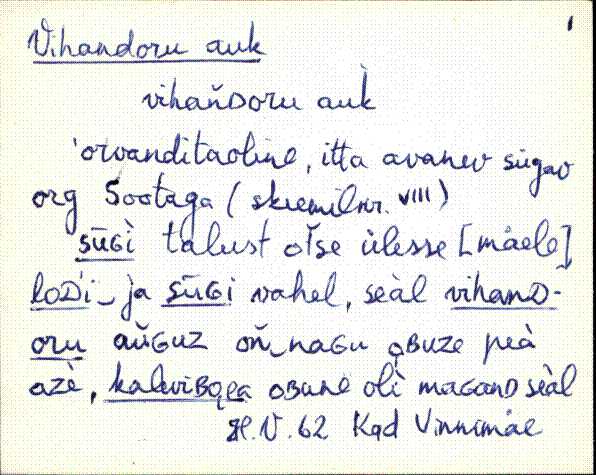 1
Vihandoru auk
vihan̆Doru auk̀
'orvanditaoline, itta avanev sügav
org Sootaga (skeemilnr. VIII)
sūGì talust otse ülesse [mäele]
loDi‿ja sūGi vahel, seàl vihanD-
oru aŭGuz on̆‿naGu oBuze peà
azè, kaleviBoea oBune olì maGanD seàl
H.V. 62 Kad Vinnimäe